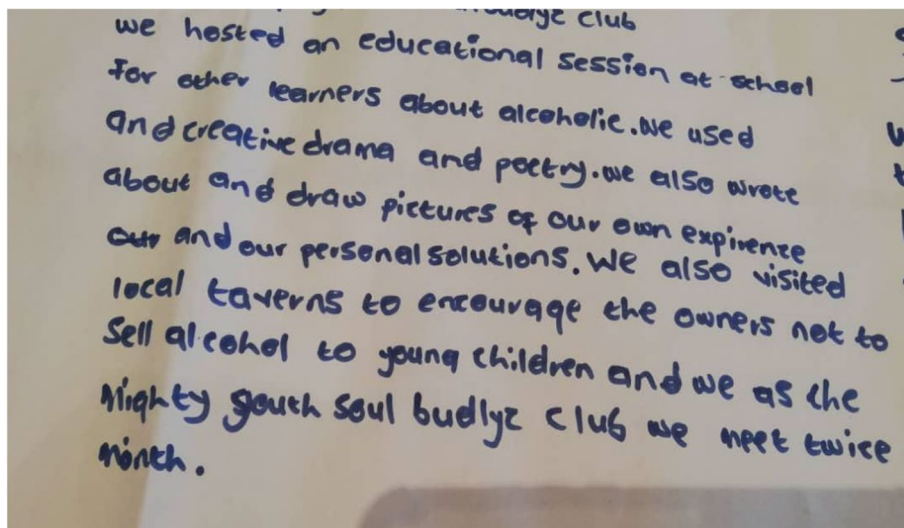 club
we hosted an educational session at school
for other learners about alcoholic. we used
and creative drama and poetry. we also wrote
about and draw pictures of our own expirence
our and our personal solutions. We also visited
local taverns to encourage the owners not to
sell alcohol to young children and we as the
Mighty youth soul budlyz club we meet twice
month.